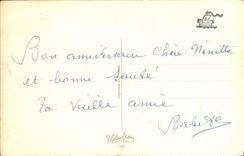 Bon anniversaire Chère Ninette
et bonne santé
Ta vieille amie